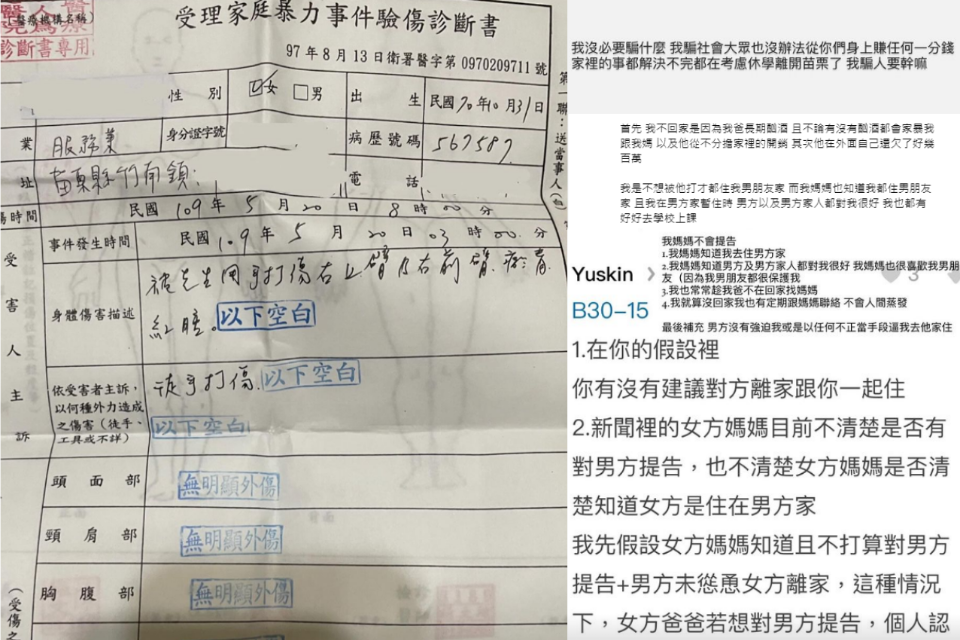 受理家庭暴力事件驗傷診斷書
(醫療機構名稱)
診斷書專用
97年8月13日衛署醫字第0970209711號
第一聯：送當事人
性別 ☑女 □男 出生 民國70年10月31日
業 服務業 身分證字號 病歷號碼 567587
址 苗栗縣竹南鎮 電話
傷時間 民國109年5月20日8時00分
受害人主訴
事件發生時間 民國109年5月20日03時00分
身體傷害描述 被先生用手打傷右上臂及右前臂瘀青
紅腫。以下空白
依受害者主訴，
以何種外力造成
之傷害（徒手、
工具或不詳）
徒手打傷 以下空白
以下空白
頭面部 無明顯外傷
頸肩部 無明顯外傷
胸腹部 無明顯外傷
（受傷之
我沒必要騙什麼 我騙社會大眾也沒辦法從你們身上賺任何一分錢
家裡的事都解決不完都在考慮休學離開苗栗了 我騙人要幹嘛
首先 我不回家是因為我爸長期酗酒 且不論有沒有酗酒都會家暴我
跟我媽 以及他從不分擔家裡的開銷 其次他在外面自己還欠了好幾
百萬
我是不想被他打才都住我男朋友家 而我媽媽也知道我都住男朋友
家 且我在男方家暫住時 男方以及男方家人都對我很好 我也都有
好好去學校上課
我媽媽不會提告
1.我媽媽知道我去住男方家
2.我媽媽知道男方及男方家人都對我很好 我媽媽也很喜歡我男朋
友（因為我男朋友都很保護我
3.我也常常趁我爸不在回家找媽媽
4.我就算沒回家我也有定期跟媽媽聯絡 不會人間蒸發
最後補充 男方沒有強迫我或是以任何不正當手段逼我去他家住
Yuskin
3
B30-15
1.在你的假設裡
你有沒有建議對方離家跟你一起住
2.新聞裡的女方媽媽目前不清楚是否有
對男方提告，也不清楚女方媽媽是否清
楚知道女方是住在男方家
我先假設女方媽媽知道且不打算對男方
提告+男方未慫恿女方離家，這種情況
下，女方爸爸若想對男方提告，個人認